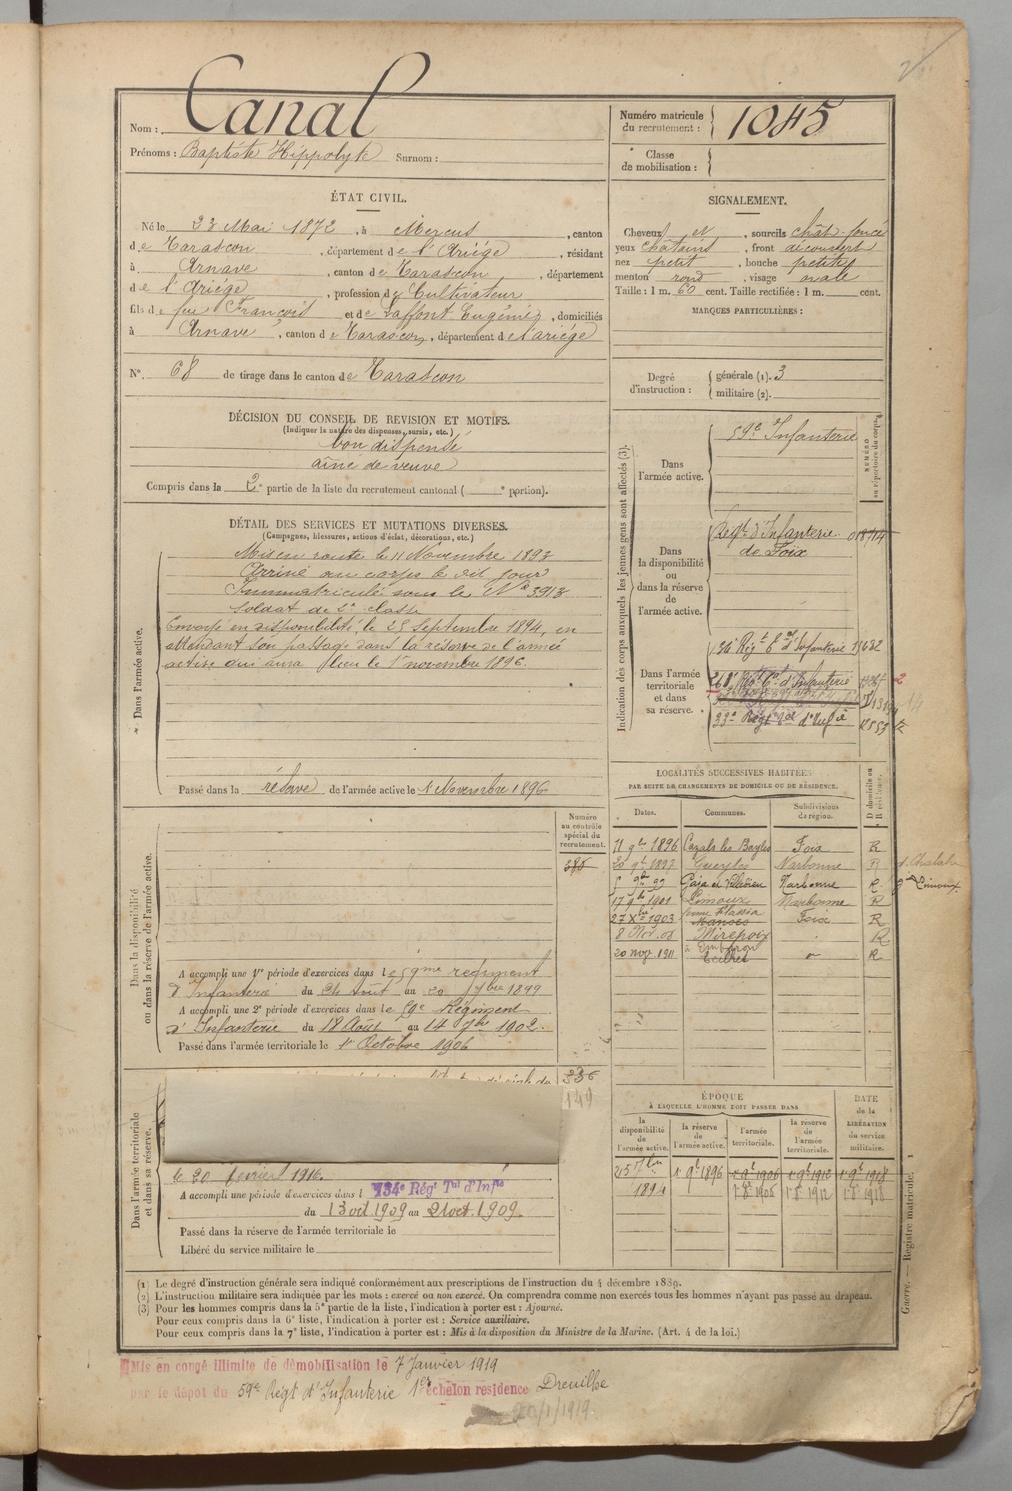 Nom : Canal
Prénoms : Baptiste Hippolyte Surnom :
Numéro matricule du recrutement : 1045
Classe de mobilisation :
ÉTAT CIVIL.
Né le 23 Mai 1872, à Mercus, canton
de Tarascon, département de l'Ariége, résidant
à Arnave, canton de Tarascon, département
de l'Ariége, profession de Cultivateur
fils de feu François et de Laffont Eugénie, domiciliés
à Arnave, canton de Tarascon, département de l'ariége
N° 68 de tirage dans le canton de Tarascon
DÉCISION DU CONSEIL DE REVISION ET MOTIFS.
(Indiquer la nature des dispenses, sursis, etc.)
bon dispensé
aîné de veuve
Compris dans la 2e partie de la liste du recrutement cantonal ( e portion).
DÉTAIL DES SERVICES ET MUTATIONS DIVERSES.
(Campagnes, blessures, actions d'éclat, décorations, etc.)
Dans l'armée active.
Mis en route le 11 Novembre 1893
Arrivé au corps le dit jour
Immatriculé sous le N° 3913
Soldat de 2e classe
Envoyé en disponibilité, le 25 Septembre 1894, en
attendant son passage dans la réserve de l'armée
active qui aura lieu le 1er novembre 1896.
Passé dans la réserve de l'armée active le 1 Novembre 1896
Dans la disponibilité ou dans la réserve de l'armée active.
Numéro au contrôle spécial du recrutement.
A accompli une 1re période d'exercices dans le 59me régiment
d'Infanterie du 24 Août au 20 7bre 1899
A accompli une 2e période d'exercices dans le 59e Régiment
d'Infanterie du 18 Août au 14 7bre 1902.
Passé dans l'armée territoriale le 1er Octobre 1906
336
149
Dans l'armée territoriale et dans sa réserve.
le 20 février 1916.
A accompli une période d'exercices dans l 134e Régt Tal d'Infie
du 13 oct 1909 au 21 oct. 1909.
Passé dans la réserve de l'armée territoriale le
Libéré du service militaire le
SIGNALEMENT.
Cheveux et, sourcils chât. foncé
yeux châtains, front découvert
nez petit, bouche petite
menton rond, visage ovale
Taille : 1 m. 60 cent. Taille rectifiée : 1 m. cent.
MARQUES PARTICULIÈRES :
Degré d'instruction : générale (1). 3
militaire (2).
Indication des corps auxquels les jeunes gens sont affectés (3).
NUMÉRO au répertoire du corps.
Dans l'armée active.
59e Infanterie
Dans la disponibilité ou dans la réserve de l'armée active.
Regt d'Infanterie
de Foix
Dans l'armée territoriale et dans sa réserve.
33e Régt Tal d'Infie
LOCALITÉS SUCCESSIVES HABITÉES
PAR SUITE DE CHANGEMENTS DE DOMICILE OU DE RÉSIDENCE.
Dates. Communes. Subdivisions de région. D domicile ou R résidence.
11 9bre 1896 Cazals les Bayles Foix R
20 9bre 1897 Gueytes Narbonne R
Gaja et Villedieu Narbonne R Limoux.
17 9bre 1901 Limoux Narbonne R
27 Xbre 1903 Manses Foix R
8 Nov. 08 Mirepoix R
20 nov. 1911 R
ÉPOQUE
À LAQUELLE L'HOMME DOIT PASSER DANS
DATE de la LIBÉRATION du service militaire.
la disponibilité de l'armée active. la réserve de l'armée active. l'armée territoriale. la réserve de l'armée territoriale.
25 7bre 1894 1r 9bre 1896 1r 9bre 1906 1r 9bre 1912 1r 9bre 1918
1r 8 1906 1r 8 1912 1r 8 1918
Guerre. — Registre matricule. 1
(1) Le degré d'instruction générale sera indiqué conformément aux prescriptions de l'instruction du 4 décembre 1889.
(2) L'instruction militaire sera indiquée par les mots : exercé ou non exercé. On comprendra comme non exercés tous les hommes n'ayant pas passé au drapeau.
(3) Pour les hommes compris dans la 5e partie de la liste, l'indication à porter est : Ajourné.
Pour ceux compris dans la 6e liste, l'indication à porter est : Service auxiliaire.
Pour ceux compris dans la 7e liste, l'indication à porter est : Mis à la disposition du Ministre de la Marine. (Art. 4 de la loi.)
Mis en congé illimité de démobilisation le 7 Janvier 1919
par le dépôt du 59e Régt d'Infanterie 1er échelon résidence Dreuilhe
20/1/1919.